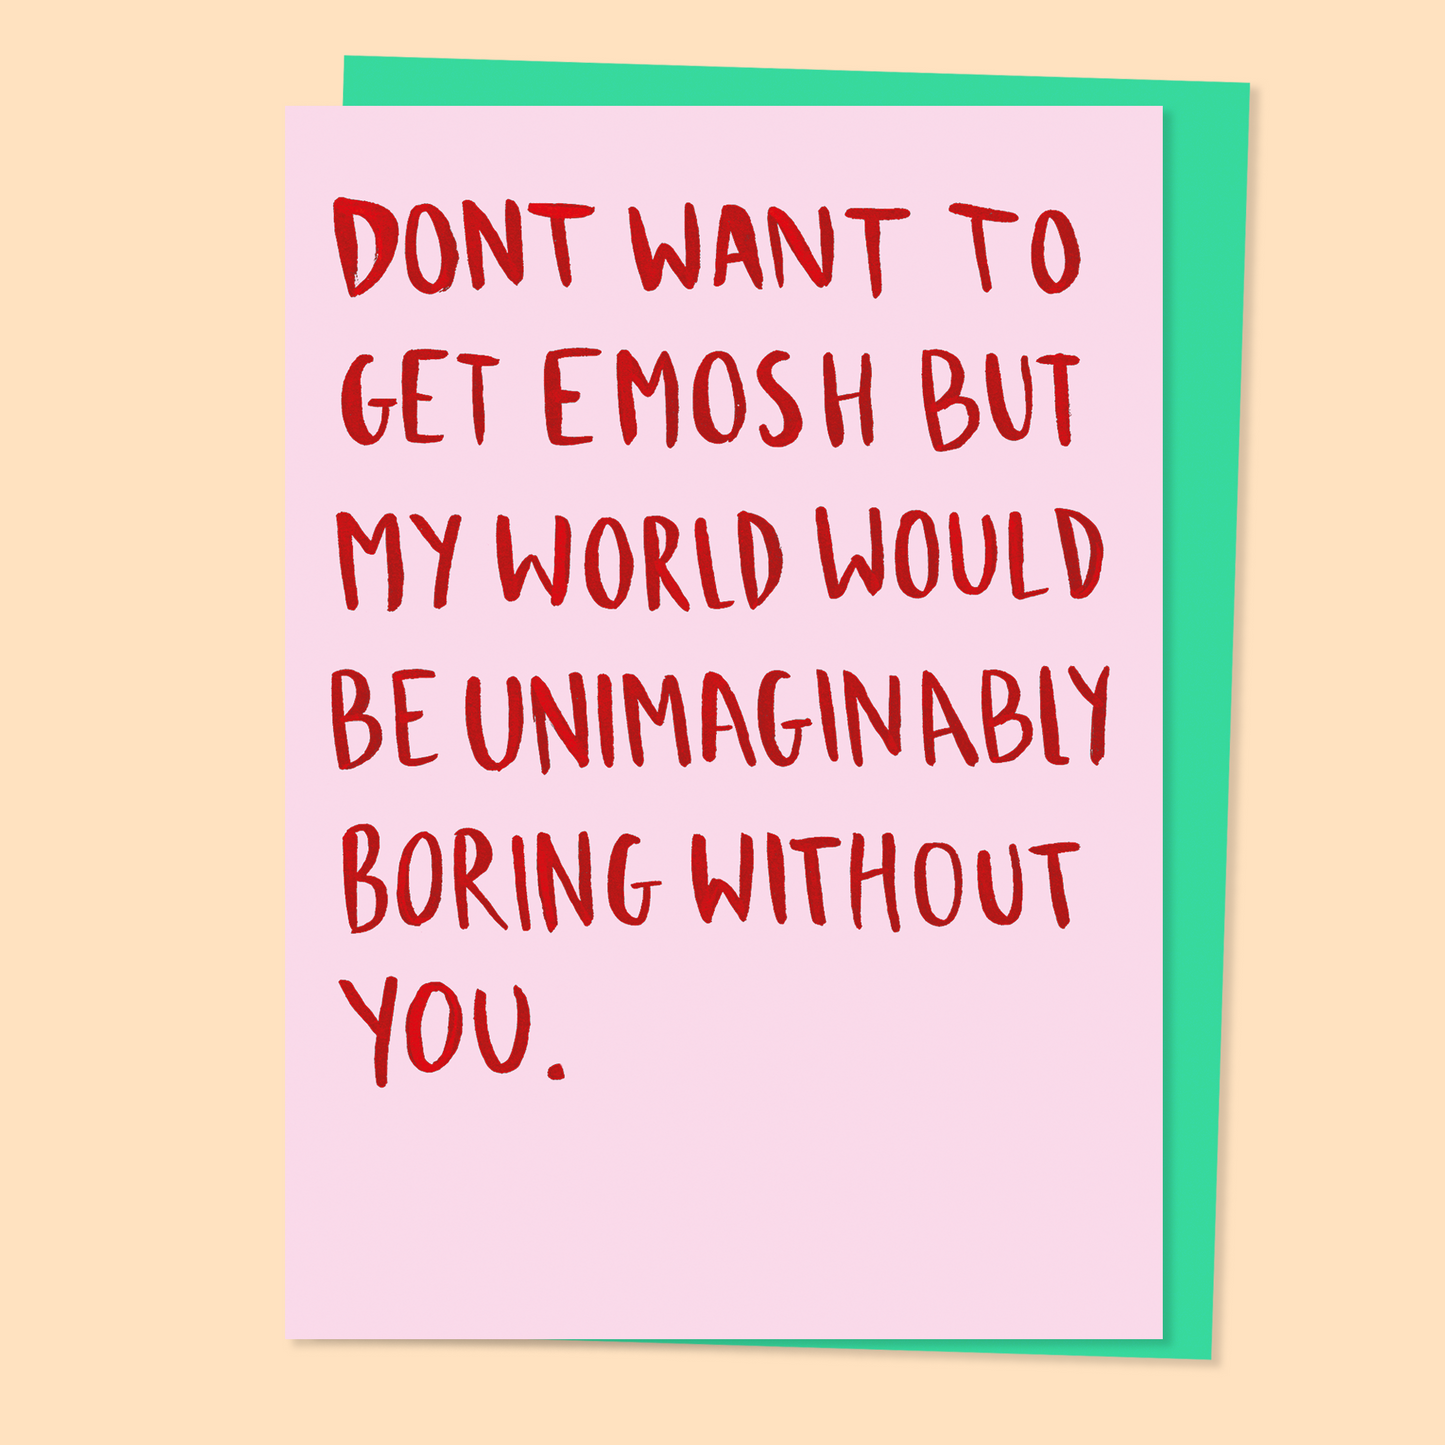 DONT WANT TO
GET EMOSH BUT
MY WORLD WOULD
BE UNIMAGINABLY
BORING WITHOUT
YOU.